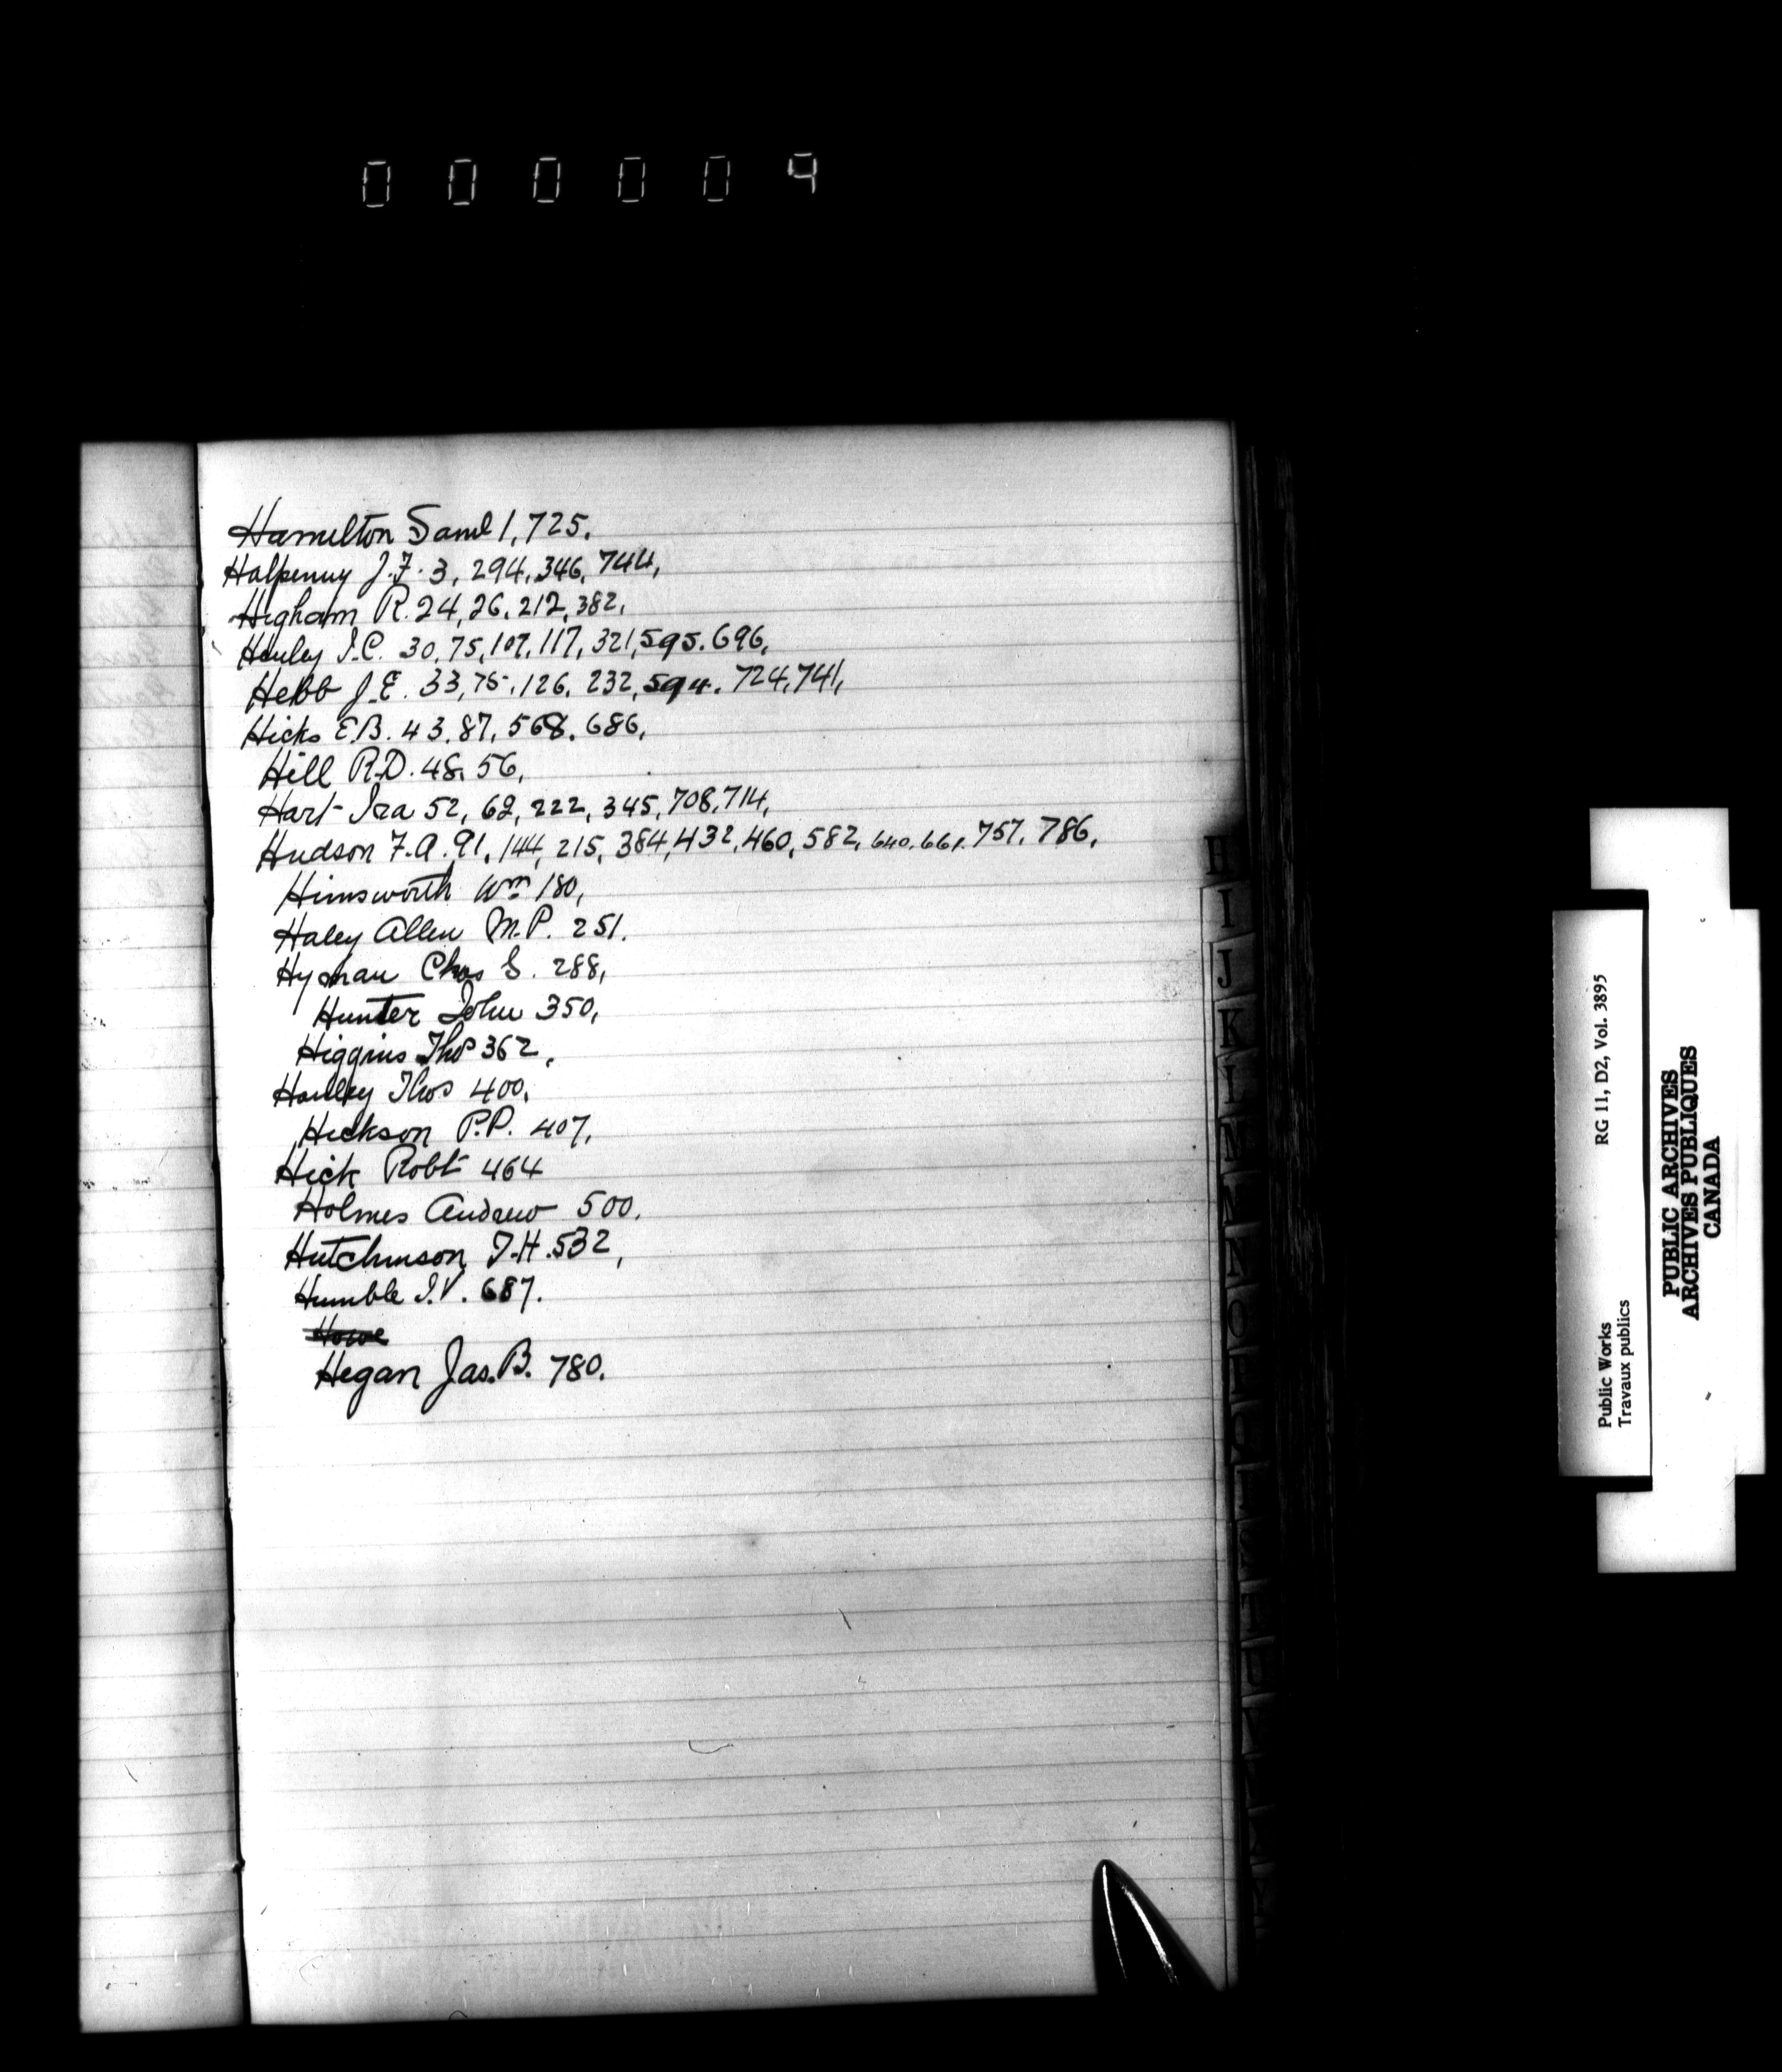 000009
Hamilton Saml 1, 725.
Halpenny J.F. 3, 294, 346, 744,
Higham R. 24, 26, 212, 382,
Henley J.C. 30, 75, 107, 117, 321, 595. 696,
Hebb J.E. 33, 75, 126, 232, 594. 724, 741,
Hicks E.B. 43, 87, 568, 686,
Hill R.D. 48, 56,
Hart Ira 52, 62, 222, 345, 708, 714,
Hudson F.A. 91, 144, 215, 384, 432, 460, 582, 640, 661, 757, 786,
Himsworth Wm 180,
Haley Allen M.P. 251.
Hyman Chas S. 288,
Hunter John 350,
Higgins Thos 362,
Hanley Thos 400,
Hickson P.P. 407,
Hick Robt 464
Holmes Andrew 500,
Hutchinson T.H. 532,
Humble J.V. 687.
Howe
Hegan Jas. B. 780.
H
I
J
K
L
M
N
O
P
Public Works
Travaux publics
RG 11, D2, Vol. 3895
PUBLIC ARCHIVES
ARCHIVES PUBLIQUES
CANADA